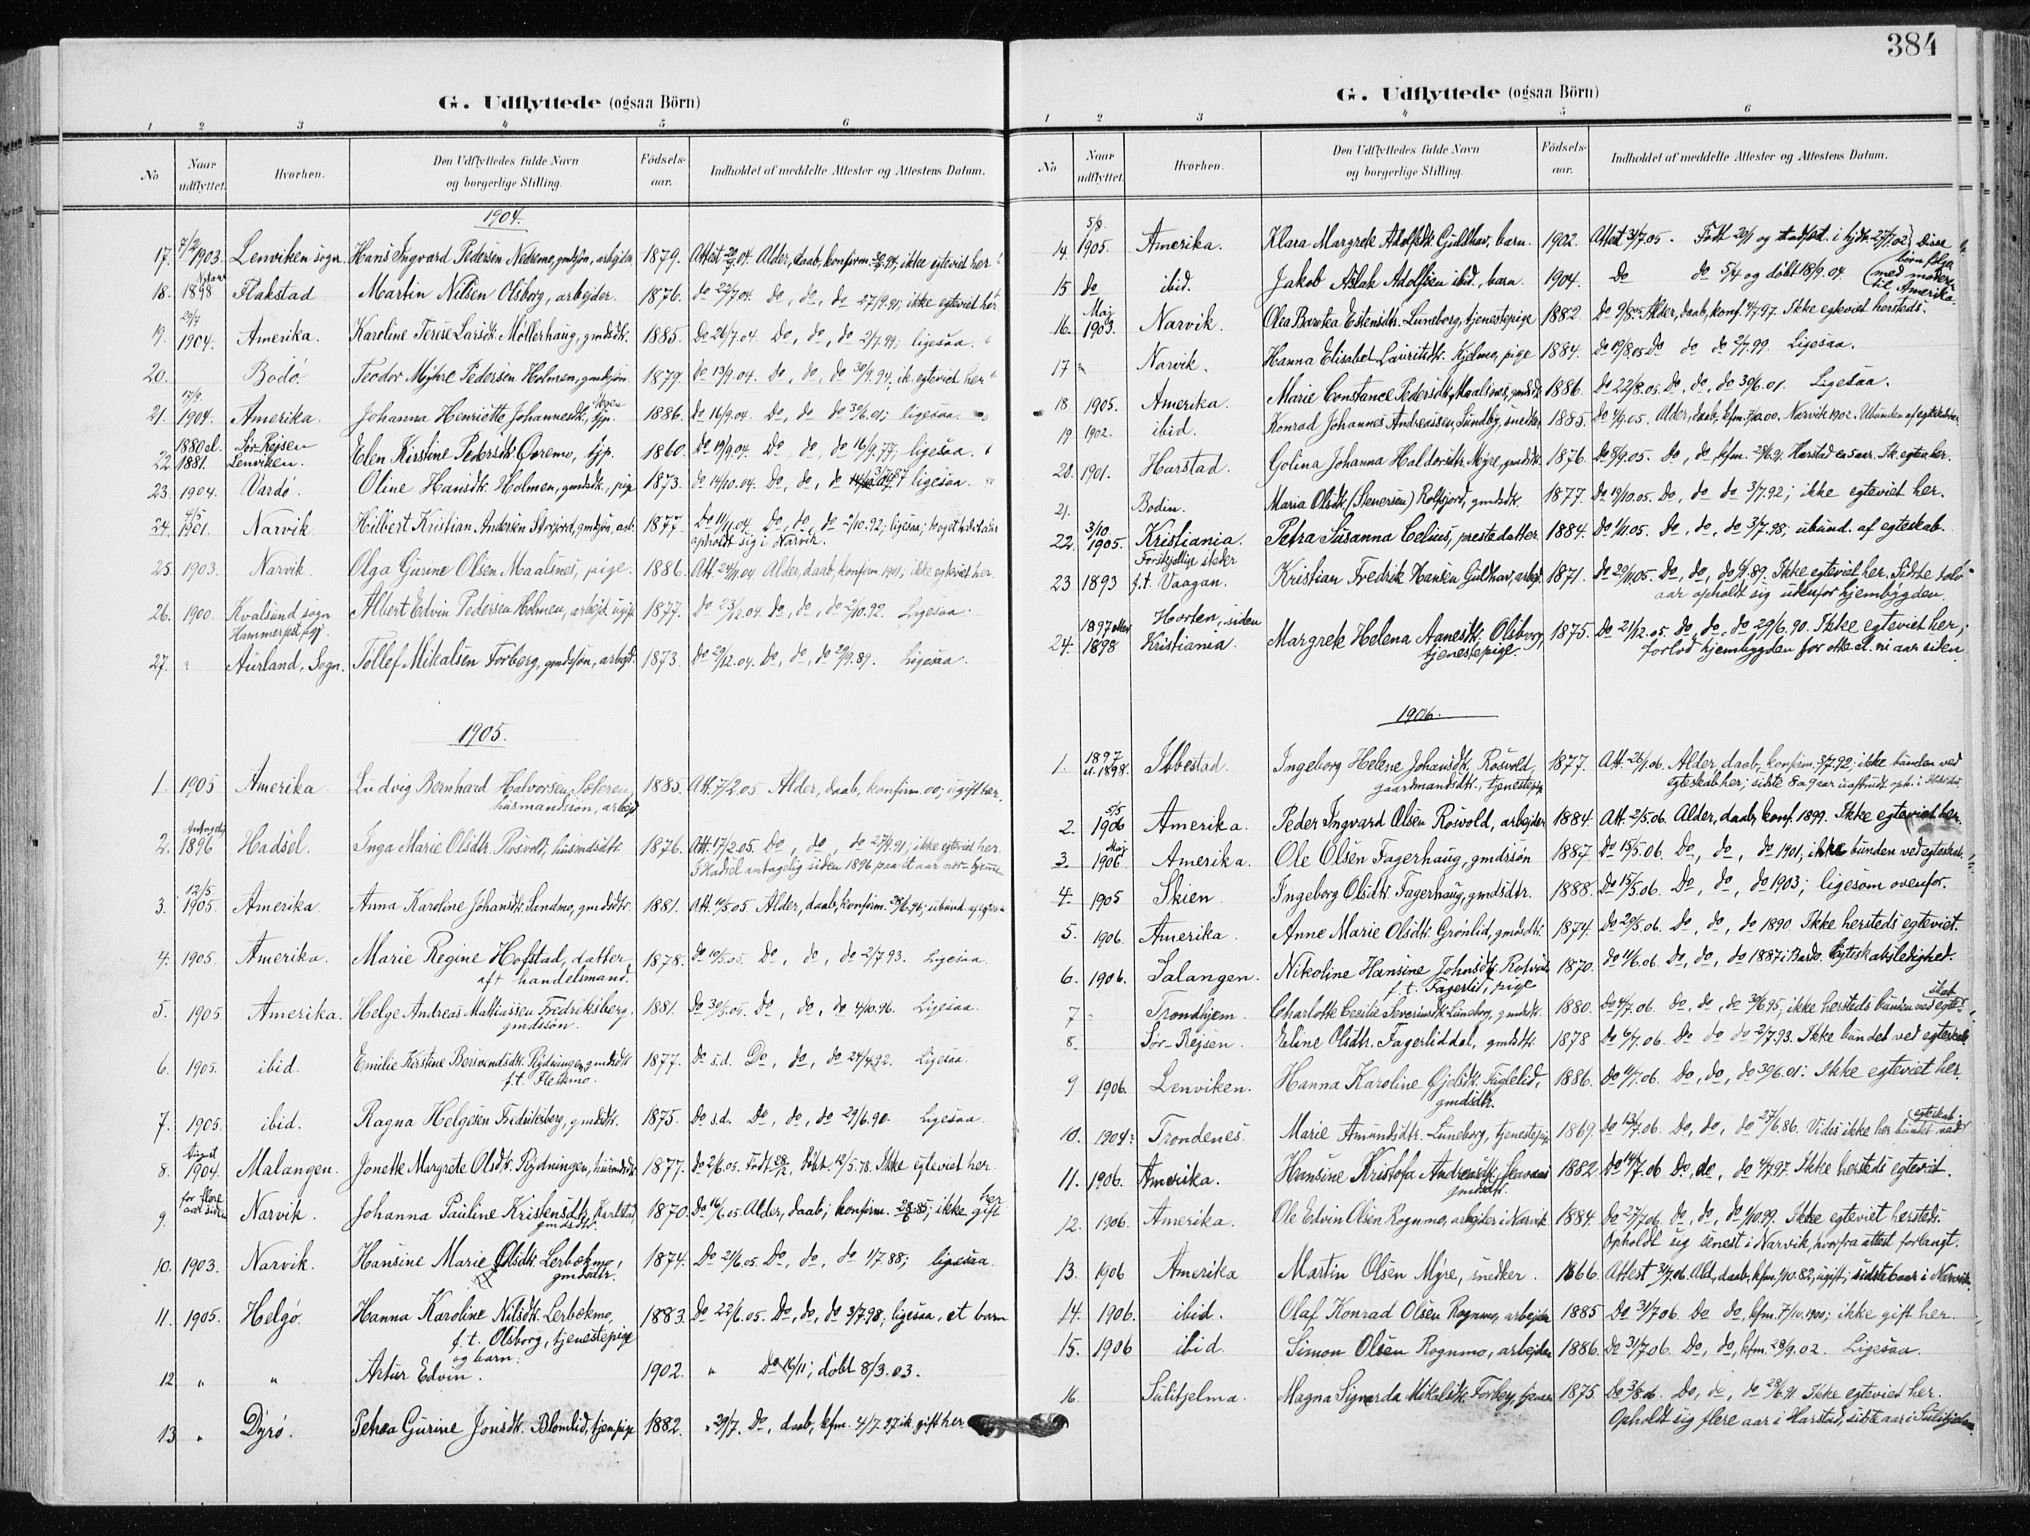 384
G. Udflyttede (ogsaa Börn)
1 2 3 4 5 6
No Naar udflyttet. Hvorhen. Den Udflyttedes fulde Navn og borgerlige Stilling. Födsels-aar. Indholdet af meddelte Attester og Attestens Datum.
1904.
17. 7/12 1903. Lenviken sogn. Hans Ingvard Pedersen Nedremo, gmdsjön, arbejder 1879. Attest 20/7.04. Alder, daab, konfirm. ikke egteviet her
18. 1898 Flakstad Martin Nilsen Olsborg, arbejder. 1876. do 22/7.04. do, do, do 27/9.91, ikke egteviet her
19. 29/7 1904. Amerika. Karoline Terese Larsdtr. Møllerhaug, gmdsdtr. 1885. Do 26/7.04. Do, do, do 2/7.99, ligesaa.
20. Bodö. Teodor Myhre Pedersen Holmen, gmdsjön 1879. Do 13/9.04. do, do, do 30/9.94, ik. egteviet her
21. 17/9. 1904. Amerika. Johanna Henriette Johannesdtr. Moen tjp. 1886. Do 16/9.04. Do, do do 30/6.01; ligesaa.
22 1880 el. 1881. Sör-Rejsen Lenviken. Elen Kirstine Pedersdtr. Öremo, tjp. 1860. Do 19/9.04 do, do, do 16/9.77, ligesaa.
23. 1904. Vardö. Oline Hansdtr. Holmen, gmdsdtr., pige 1873. do 14/10.04. do, do, do ligesaa.
24. 1901. Narvik Hilbert Kristian Andersen Storjord, gmdsjön, arb. 1877. Do 11/11.04. Do, do, do 2/10.92; ligesaa;
opholdt sig i Narvik.
25. 1903. Narvik. Olga Gurine Olsen Maalsnes, pige. 1886. Att. 24/11.04 Alder, daab, konfirm 1901, ikke egteviet her.
26. 1900. Kvalsund sogn Hammerfest pgj. Albert Edvin Pedersen Holmen, arbejd. ugift 1877. Do 23/12.04 Do, do, do 2/10.92. Ligesaa.
27. " Aurland, Sogn. Tollef Mikalsen Forberg, gmdsjön, arbejd. 1873. Do 29/12.04. Do, do, do 29/9.89. Ligesaa.
1905.
1. 1905 Amerika. Ludvig Bernhard Halvorsen, Sæteren, husmandssön, arbejd 1885. Att. 7/2.05 Alder, daab, konfirm. 00; ugift her.
2. Antagelig 1896 Hadsel. Inga Marie Olsdtr. Rosvoll, husmdsdtr. 1876. Att. 17/2.05. Do, do, do 27/9.91; ikke egteviet her.
I Hadsel antagelig siden 1896 paa et aar nær hjemme
3. 12/5 1905. Amerika. Anna Karoline Johansdtr. Sandmo, gmdsdtr. 1881. Att. 10/5.05 Alder, daab, konfirm. 30/6.96; ubund. af egtesk.
4. 1905. Amerika. Marie Regine Hofstad, datter aft handelsmand. 1878. do 10/5.05. Do, do, do 2/7.93. Ligesaa.
5. 1905. Amerika. Helge Andreas Mattiassen Fredriksberg, gmdssön. 1881. Do 30/5.05. Do, do, do 4/10.96. Ligesaa.
6. 1905. ibid. Emilie Kirstine Bersvendsdtr. Rydningen, gmdsdtr f.t. Flesmo. 1877. Do s.d. Do, do, do 24/4.92. Ligesaa.
7. 1905. ibid. Ragna Helgesen Fredriksberg, gmdsdtr. 1875. Do s.d. Do, do, do 29/6.90. Ligesaa.
8. August 1904. Malangen. Jonette Margrete Olsdtr. Rydningen, husmdsdtr 1877. Do 2/6.05. Födt 28/2. Döbt 12/5.78. Ikke egteviet her.
9. for flere aar siden Narvik. Johanna Pauline Kristensdtr. Karlstad, gmdsdtr. 1870. Do 16/6.05 Alder, daab, konfirm. 28/6.85; ikke gift her
10. 1903. Narvik. Hansine Marie Olsdtr. Lerbækmo, gmdsdtr. 1874. Do 21/6.05. Do, do, do 1/7 88; ligesaa.
11. 1905. Helgö. Hanna Karoline Nilsdtr. Lerbækmo, f.t. Olsborg, tjenestepige og barn: 1883. Do 22/6.05. Do, do, do 3/7.98; ligesaa, et barn
12 " " Artur Edvin. 1902. " Do 16/11; döbt 8/3.03.
13 " Dyrö. Petrea Gurine Jonsdtr. Blomlid, tjen.pige 1882. " 29/7. Do, daab, kfm. 4/7.97 ik gift her
G. Udflyttede (ogsaa Börn)
1 2 3 4 5 6
No Naar udflyttet. Hvorhen. Den Udflyttedes fulde Navn og borgerlige Stilling. Födsels-aar. Indholdet af meddelte Attester og Attestens Datum.
14. 5/8. 1905. Amerika. Klara Margrete Adolfsdtr. Guldhav, barn. 1902. Attest 31/7.05. Födt 20/1 og stadfæst. i hjdb. 27/7.02; Disse börn följe med moderen til Amerika.
15 do ibid. Jakob Aslak Adolfsen ibid., barn. 1904. Do do 5/4 og döbt 18/9.04.
16. Maj 1903. Narvik. Olea Barotea Estensdtr. Luneborg, tjenestepige 1882 Do 9/8.05 Alder, daab, konf. 4/7.97. Ikke egteviet hersteds.
17 " Narvik. Hanna Elisabet Lauritsdtr. Kjelmo, pige 1884. Do 19/8.05 Do do do 2/7.99. Ligesaa.
18 1905. Amerika. Marie Constance Pedersdtr. Maalsnes, gmdsdtr 1886. Do 22/8.05. Do, do, do 30/6.01. Ligesaa.
19 1902. ibid. Konrad Johannes Andreassen, Lundby, snedker 1885. Do 4/9.05. Alder, daab, kfm. 7/10.00. Narvik 1902. Ubunden af egteskab her.
20. 1901. Harstad. Golina Johanna Haldorsdtr. Myre, gmdsdtr. 1876. Do 8/9.05. Do, do, kfm. 28/6.91. Harstad en 5 aar. Ik. egtev. her.
21. Bodin. Maria Olsdtr. (Senersen) Rolfsjord, gmdsdtr. 1877. Do 19/10.05. Do, do do 3/7.92; ikke egteviet her.
22. 3/10 1905. Kristiania. Petra Susanna Celius, prestedatter. 1884. Do 1/11.05. Do, do, do 3/7.98; ubund. af egteskab.
23 1893 Forskjellige steder f.t. Vaagan. Kristian Fredrik Hansen Guldhav, arbejd. 1871. Do 22/11.05. Do, do, do 9/1.89. Ikke egteviet her. Sidste tolv aar opholdt sig udenfor hjembygden.
24. 1897 eller 1898 Horten, siden Kristiania. Margrete Helena Aanesdtr. Olsborg, tjenestepige. 1875. Do 21/12.05. Do, do, do 29/6.90. Ikke egteviet her; forlod hjembygden for otte el. ni aar siden
1906.
1. 1897 el. 1898. Ibbestad. Ingeborg Helene Johansdtr. Rosvold, gaardmandsdtr., tjenestepige 1877. Att. 26/1.06. Alder, daab, konfirm. 3/7.92; ikke bunden ved egteskab her; sidste 8 a 9 aar uafbrudt oph. i Ibbestad.
2. 5/5 1906 Amerika. Peder Ingvard Olsen Rosvold, arbejder 1884. Att. 2/5.06. Alder, daab, konf. 1899. Ikke egteviet her.
3. Maj 1906 Amerika. Ole Olsen Fagerhaug, gmdssön 1887 Do 15/5.06. Do, do, do 1901; ikke bunden ved egteskab.
4. 1905 Skien. Ingeborg Olsdtr. Fagerhaug, gmdsdtr. 1888. Do 15/5.06. Do, do, do 1903; ligesom ovenfor.
5. 1906. Amerika. Anne Marie Olsdtr. Grönlid, gmdsdtr. 1874. Do 29/5.06. do, do, do 1890. Ikke hersteds egteviet.
6. 1906. Salangen. Nikoline Hansine Johnsdtr. Rotvik f.t. Fagerlid, pige 1870. do 11/6.06. do, do, do 1887 i Bardo. Egteskabsledighed.
7 " Trondhjem. Charlotte Cecilie Severinsdtr. Luneborg, gmdsdtr. 1880. Do 4/7.06. do, do, do 30/6.95; ikke hersteds bunden ved egteskab
8 " Sör-Rejsen. Eline Olsdtr. Fagerliddal, gmdsdtr. 1878 Do 6/7.06. Do do do 2/7.93. Ikke bundet ved egteskab.
9 1906. Lenviken. Hanna Karoline Gjelsdtr. Fuglelid, gmdsdtr. 1886. Do 11/7.06. do, do, do 30/6.01: Ikke egteviet her.
10. 1904: Trondenes. Marie Amundsdtr. Luneborg, tjenestepig 1869. Do 13/7.06. Do, do, do 27/6.86. Vides ikke her bundet ved egteskab.
11. 1906. Amerika. Hansine Kristofa Andreasdtr. Skavaasen gmdsdtr. 1882. Do 14/7.06 Do, do, do 4/7.97. Ikke hersteds egteviet.
12. 1906. Amerika. Ole Edvin Olsen Rognmo, arbejder i Narvik 1884. Do 27/7.06. do, do, do 1/10.99. Ikke egteviet hersteds. Opholdt sig senest i Narvik, hvorfra attest forlangt.
13. 1906 Amerika Martin Olsen Myre, snedker. 1866. Attest 31/7.06. Ald., daab, kfm. 1/10.82, ugift; sidste aar i Narvik.
14. 1906. ibid. Olaf Konrad Olsen Rognmo, arbejder 1885 Do 31/7.06. Do do, kfm. 7/10.1900; ikke gift her.
15. 1906 ibid. Simon Olsen Rognmo, arbejder 1886. Do 31/7.06. Do, do, kfm. 28/9.02. Ligesaa.
16. Sulitjelma. Magna Sigvarda Mikalsdtr. Forberg, tjenes 1875. Do 3/8.06. Do, do, do 28/6.91. Ikke egteviet her. Opholdt sig flere aar i Harstad, sidste aar i Sulitjelma.